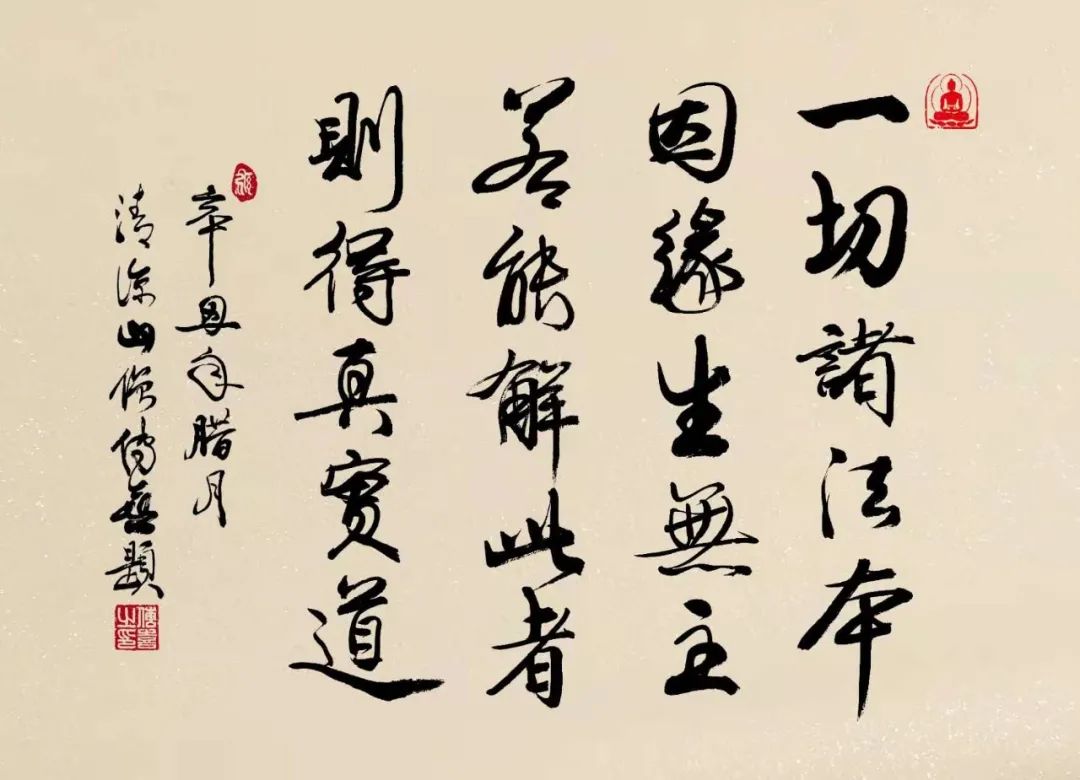 一切諸法本
因緣生無主
若能解此者
則得真實道
辛丑年腊月
清涼山僧傳喜題
傳喜之印